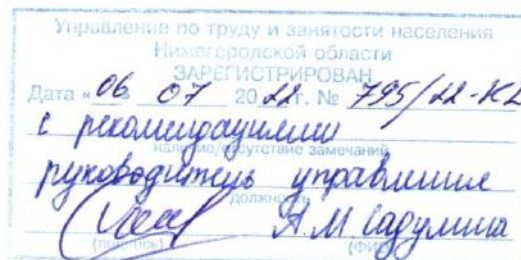 Управление по труду и занятости населения
Нижегородской области
ЗАРЕГИСТРИРОВАН
Дата « 06 » 07 2022г. № 795/22-КД
с рекомендациями
наличие/отсутствие замечаний
руководитель управления
должность
А.М. Садулина
(подпись) (ФИО)